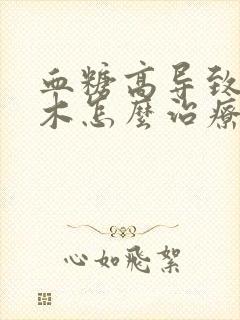 血糖高导致
木怎麼治療
心如飛絮